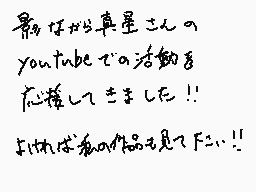 影ながら真星さんの
youtubeでの活動を
応援してきました!!
よければ私の作品も見て下さい!!